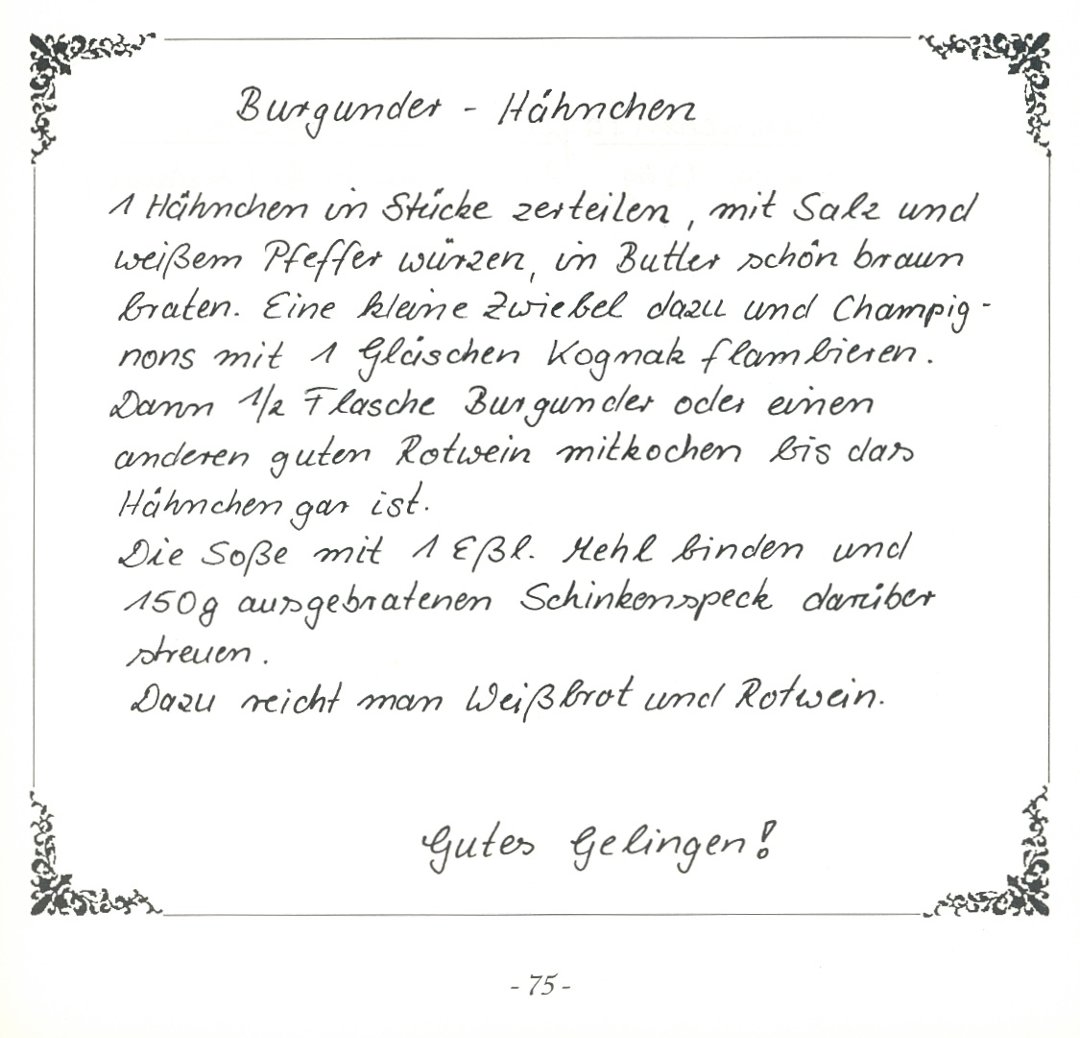 Burgunder - Hähnchen
1 Hähnchen in Stücke zerteilen, mit Salz und
weißem Pfeffer würzen, in Butter schön braun
braten. Eine kleine Zwiebel dazu und Champig-
nons mit 1 Gläschen Kognak flambieren.
Dann 1/2 Flasche Burgunder oder einen
anderen guten Rotwein mitkochen bis das
Hähnchen gar ist.
Die Soße mit 1 Eßl. Mehl binden und
150g ausgebratenen Schinkenspeck darüber
streuen.
Dazu reicht man Weißbrot und Rotwein.
Gutes Gelingen!
- 75 -